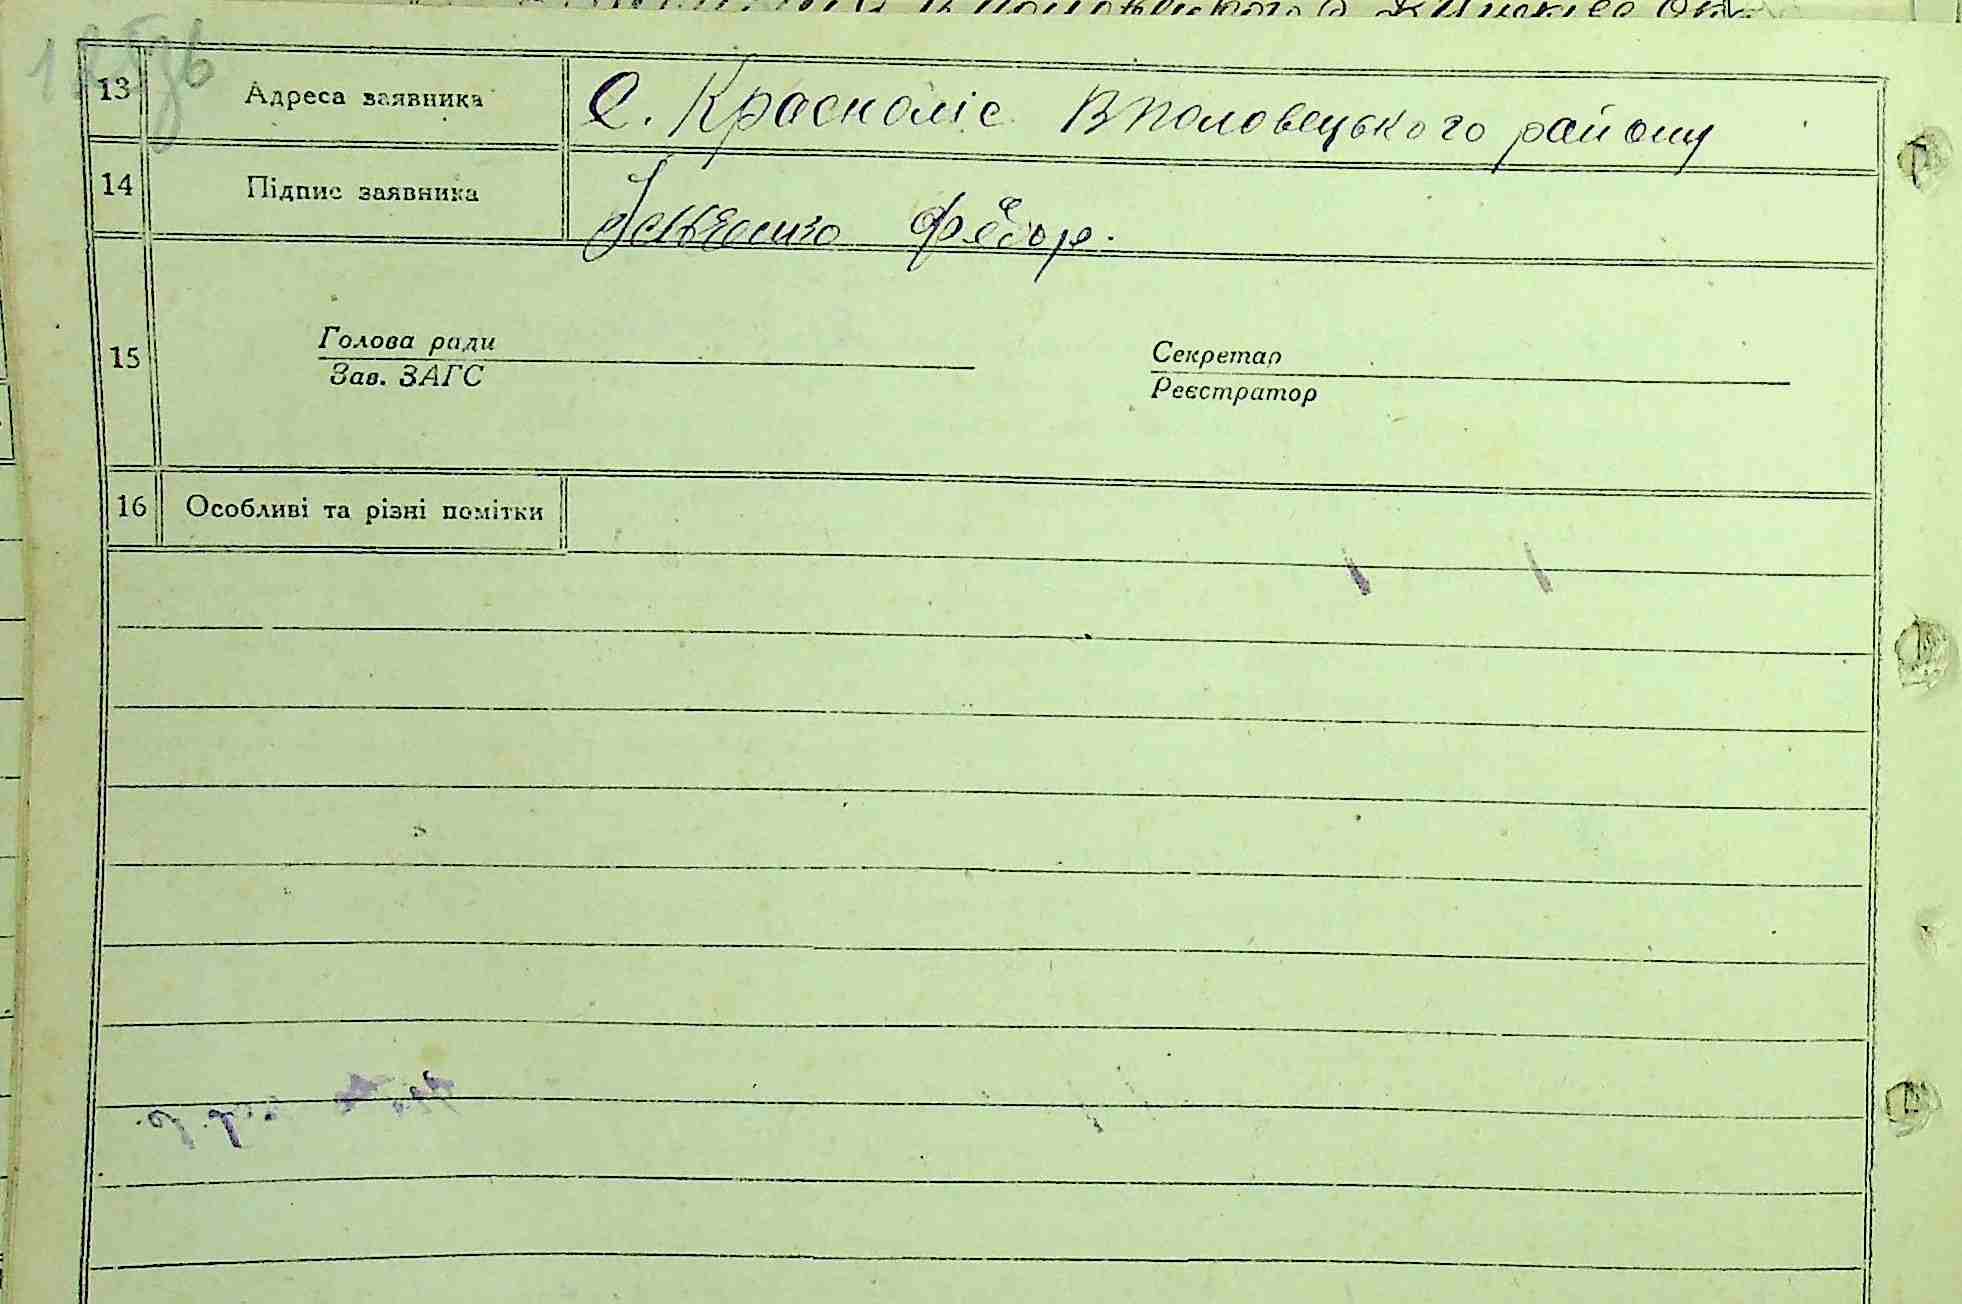 13 Адреса заявника С. Красноліс Вполовецького району
14 Підпис заявника Федор.
15
Голова ради
Зав. ЗАГС
Секретар
Реєстратор
16 Особливі та різні помітки